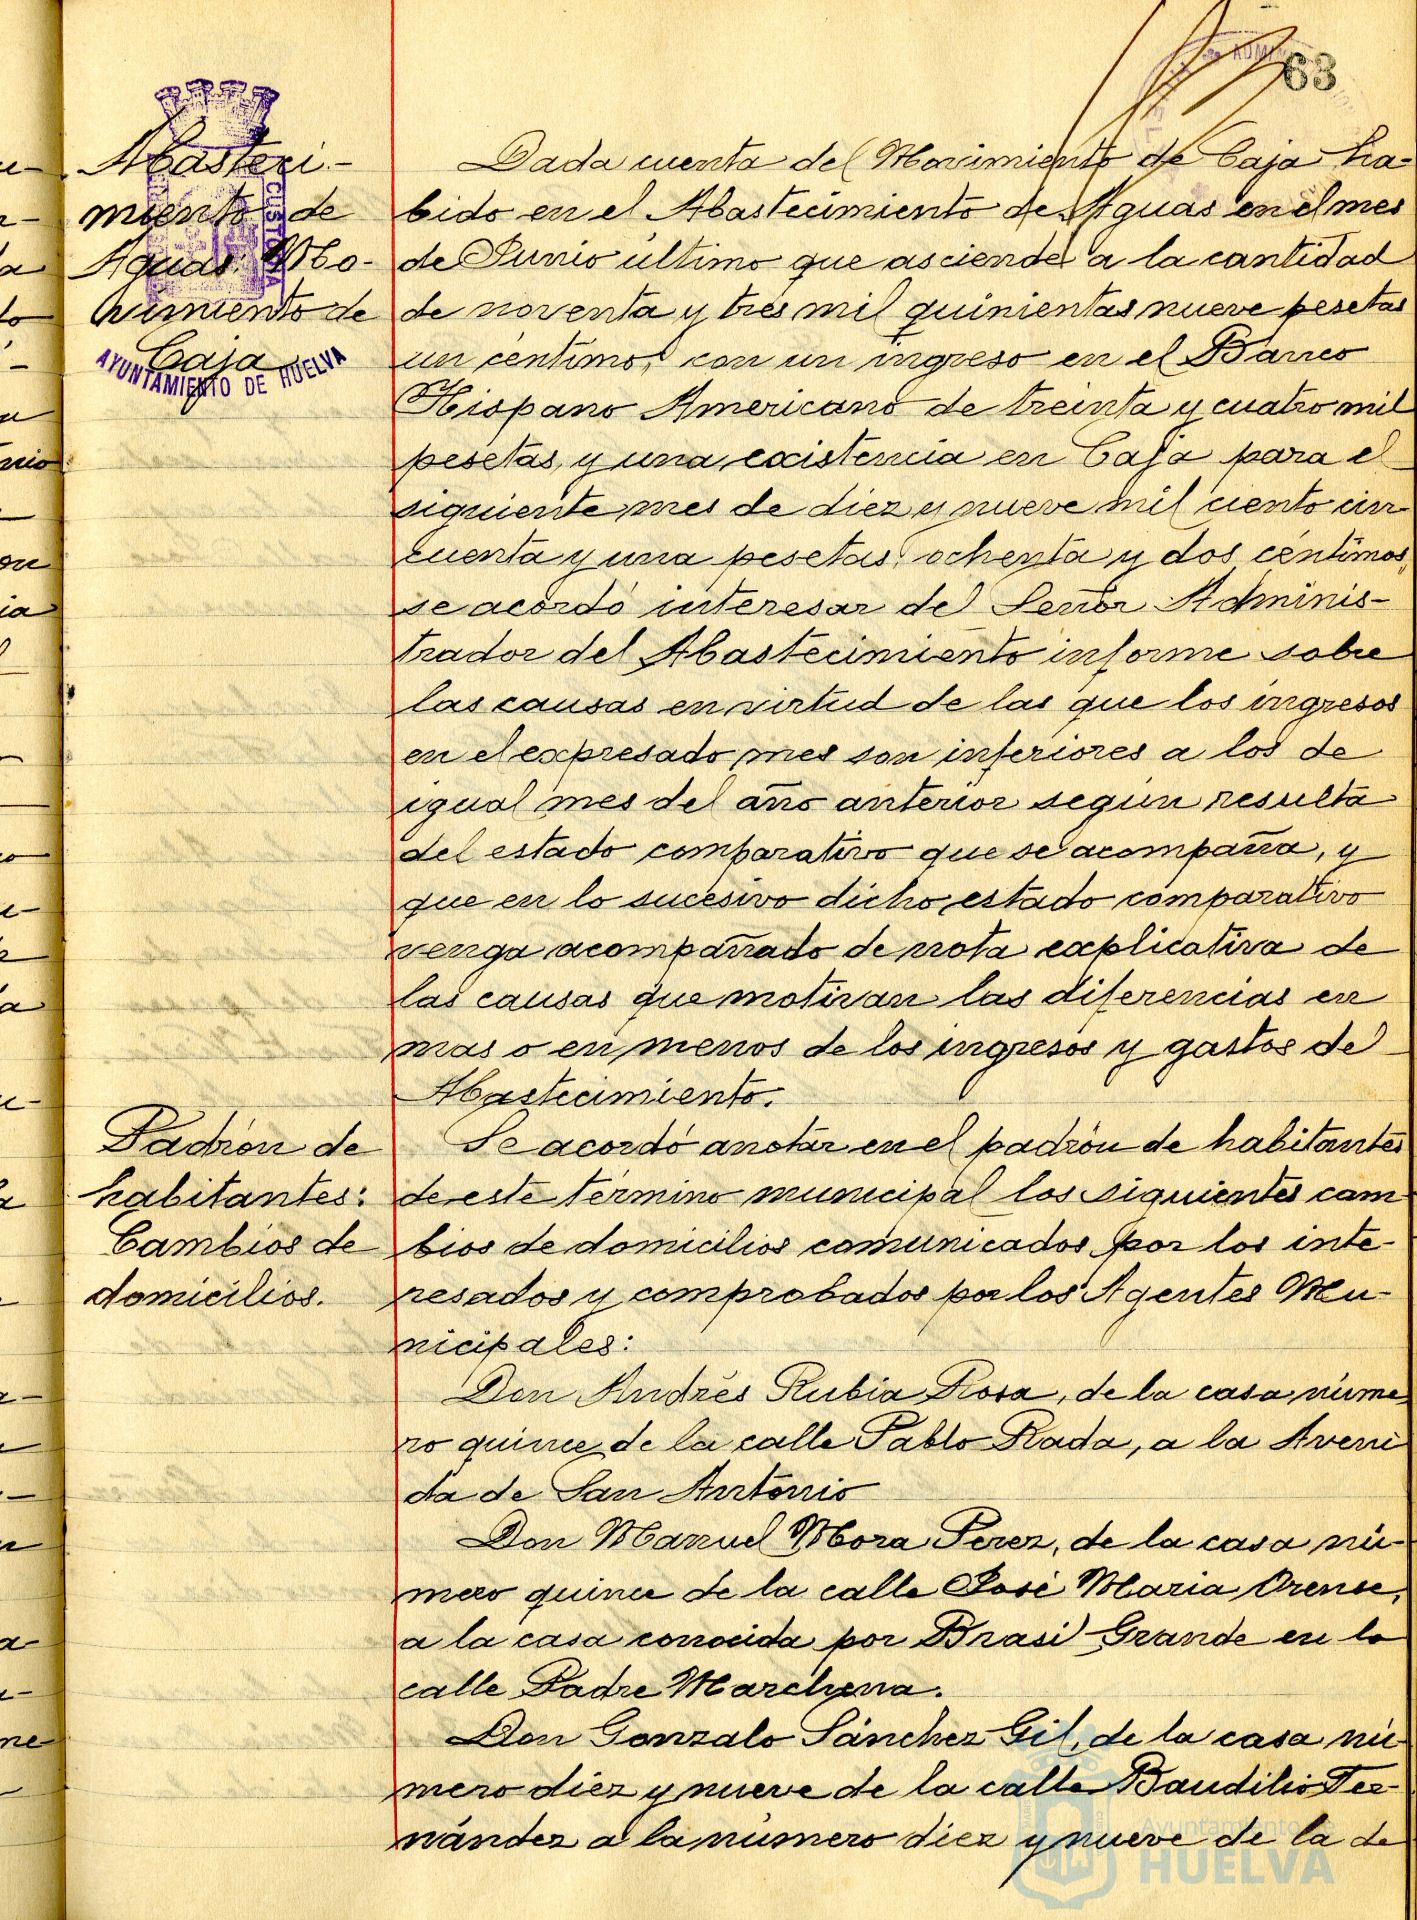 63
Abasteci-
miento de
Aguas: Mo-
vimiento de
Caja
CUSTODIA
AYUNTAMIENTO DE HUELVA
Dada cuenta del Movimiento de Caja ha-
bido en el Abastecimiento de Aguas en el mes
de Junio último que asciende a la cantidad
de noventa y tres mil quinientas nueve pesetas
un céntimo, con un ingreso en el Banco
Hispano Americano de treinta y cuatro mil
pesetas, y una existencia en Caja para el
siguiente mes de diez y nueve mil ciento cin-
cuenta y una pesetas ochenta y dos céntimos,
se acordó interesar del Señor Adminis-
trador del Abastecimiento informe sobre
las causas en virtud de las que los ingresos
en el expresado mes son inferiores a los de
igual mes del año anterior según resulta
del estado comparativo que se acompaña, y
que en lo sucesivo dicho estado comparativo
venga acompañado de nota explicativa de
las causas que motivan las diferencias en
mas o en menos de los ingresos y gastos del
Abastecimiento.
Padrón de
habitantes:
Cambios de
domicilios.
Se acordó anotar en el padrón de habitantes
de este término municipal los siguientes cam-
bios de domicilios comunicados por los inte-
resados y comprobados por los Agentes Mu-
nicipales:
Don Andrés Rubia Rosa, de la casa núme-
ro quince de la calle Pablo Rada, a la Aveni
da de San Antonio
Don Manuel Mora Perez, de la casa nú-
mero quince de la calle José Maria Orense,
a la casa conocida por Brasil Grande en la
calle Padre Marchena.
Don Gonzalo Sánchez Gil, de la casa nú-
mero diez y nueve de la calle Baudilio Fer-
nández a la número diez y nueve de la de
Ayuntamiento de
HUELVA